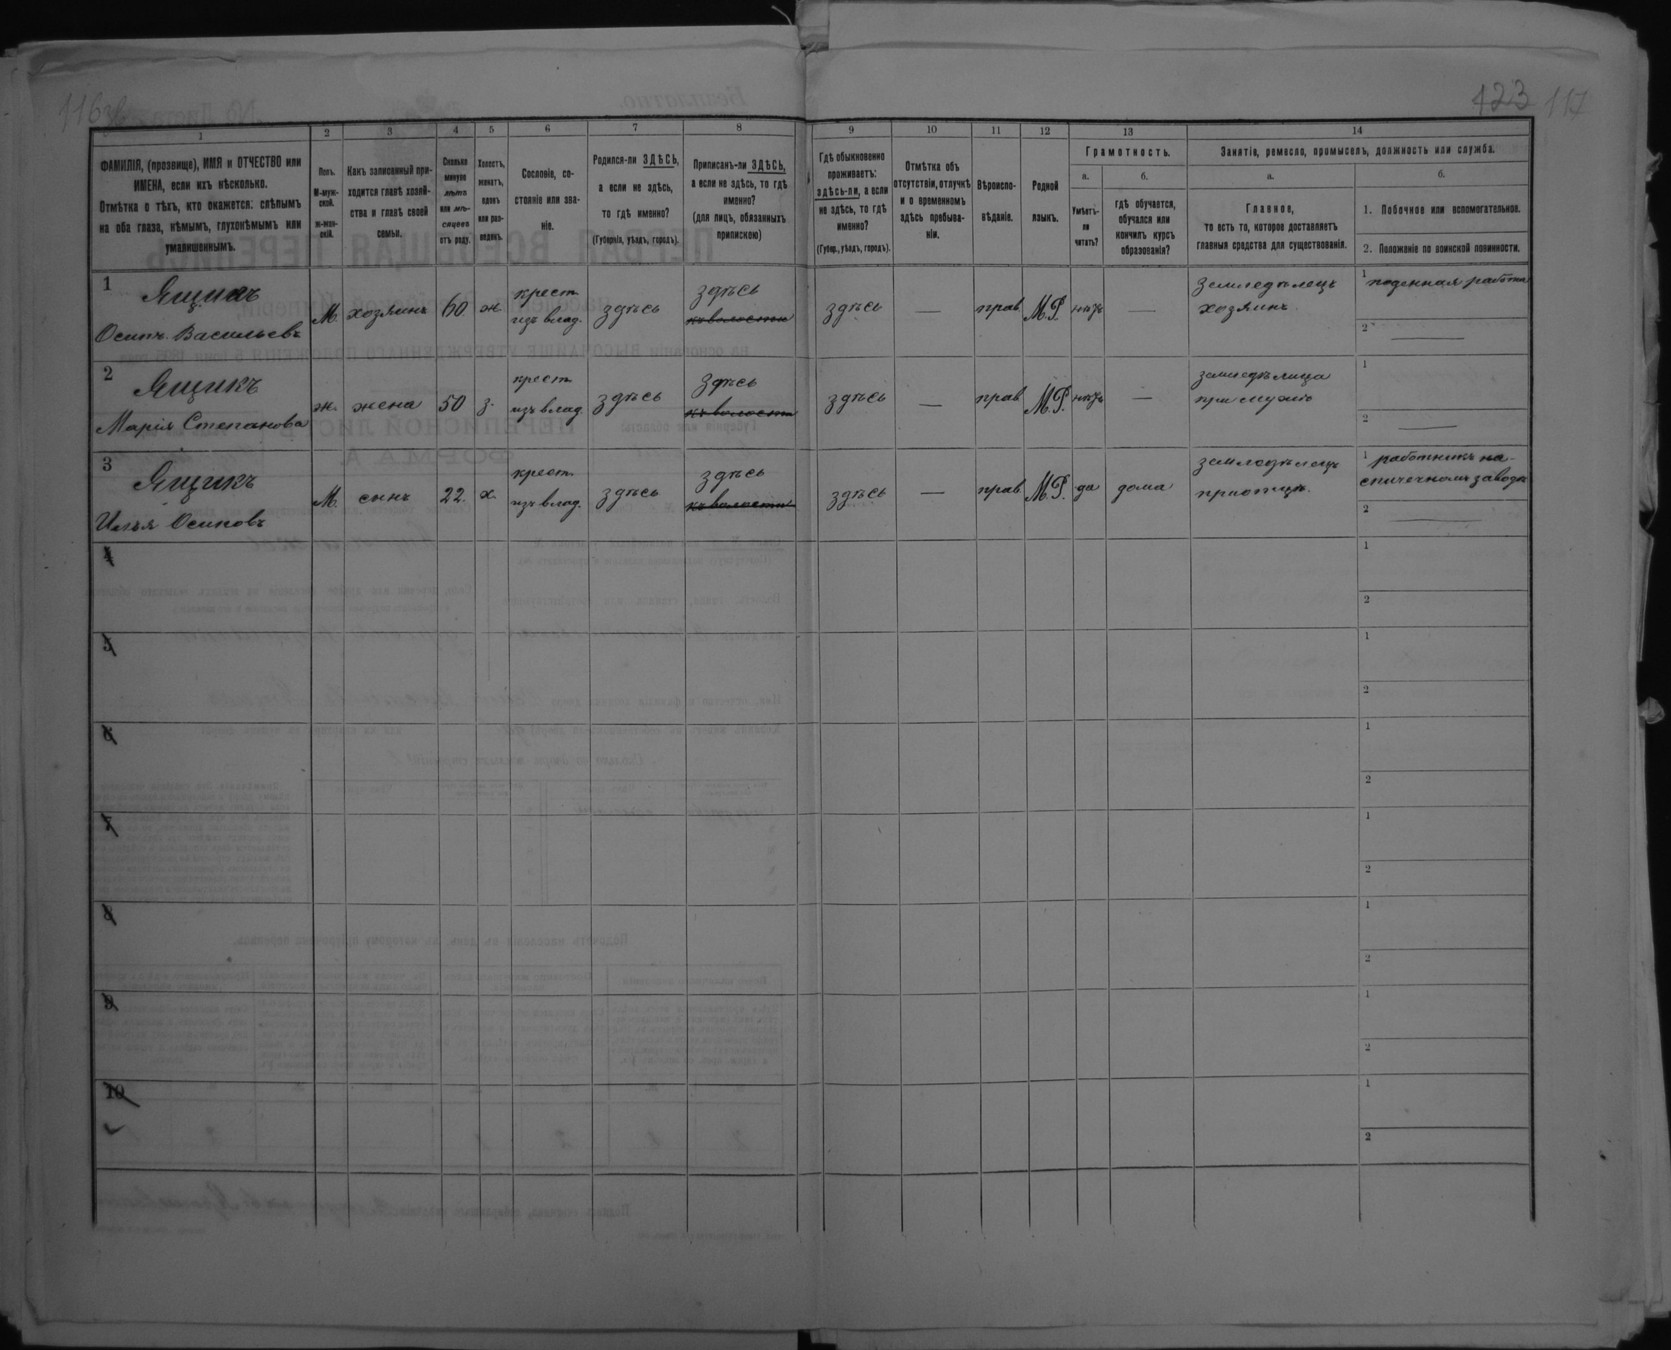 116об
123 117
1
2
3
4
5
6
7
8
9
10
11
12
13
14
ФАМИЛІЯ, (прозвище), ИМЯ и ОТЧЕСТВО или
ИМЕНА, если ихъ нѣсколько.
Отмѣтка о тѣхъ, кто окажется: слѣпымъ
на оба глаза, нѣмымъ, глухонѣмымъ или
умалишеннымъ.
Полъ.
М-муж-
ской.
ж-жен-
скій.
Какъ записанный при-
ходится главѣ хозяй-
ства и главѣ своей
семьи.
Сколько
минуло
лѣтъ
или мѣ-
сяцевъ
отъ роду.
Холостъ,
женатъ,
вдовъ
или раз-
веденъ.
Сословіе, со-
стояніе или зва-
ніе.
Родился-ли ЗДѢСЬ,
а если не здѣсь,
то гдѣ именно?
(Губернія, уѣздъ, городъ).
Приписанъ-ли ЗДѢСЬ,
а если не здѣсь, то гдѣ
именно?
(для лицъ, обязанныхъ
припискою)
Гдѣ обыкновенно
проживаетъ:
здѣсь-ли, а если
не здѣсь, то гдѣ
именно?
(Губер., уѣздъ, городъ).
Отмѣтка объ
отсутствіи, отлучкѣ
и о временномъ
здѣсь пребыва-
ніи.
Вѣроиспо-
вѣданіе.
Родной
языкъ.
Грамотность.
а.
Умѣетъ-
ли
читать?
б.
гдѣ обучается,
обучался или
кончилъ курсъ
образованія?
Занятіе, ремесло, промыселъ, должность или служба.
а.
Главное,
то есть то, которое доставляетъ
главныя средства для существованія.
б.
1. Побочное или вспомогательное.
2. Положеніе по воинской повинности.
1
Ящикъ
Осипъ Васильевъ
М. хозяинъ 60 ж.
крест.
изъ влад.
здѣсь
здѣсь
къ волости
здѣсь — прав. М.Р. нѣтъ —
земледѣлецъ
хозяинъ
1 поденная работа
2 —
2
Ящикъ
Марія Степанова
ж. жена 50 з.
крест.
изъ влад.
здѣсь
здѣсь
къ волости
здѣсь — прав. М.Р. нѣтъ —
при мужѣ
1
2 —
3
Ящикъ
Илья Осиповъ
М. сынъ 22 х.
крест.
изъ влад.
здѣсь
здѣсь
къ волости
здѣсь — прав. М.Р. да дома
земледѣлецъ
при отцѣ.
1 работникъ на
спичечномъ заводѣ
2 —
4
1
2
5
1
2
6
1
2
7
1
2
8
1
2
9
1
2
10
1
2